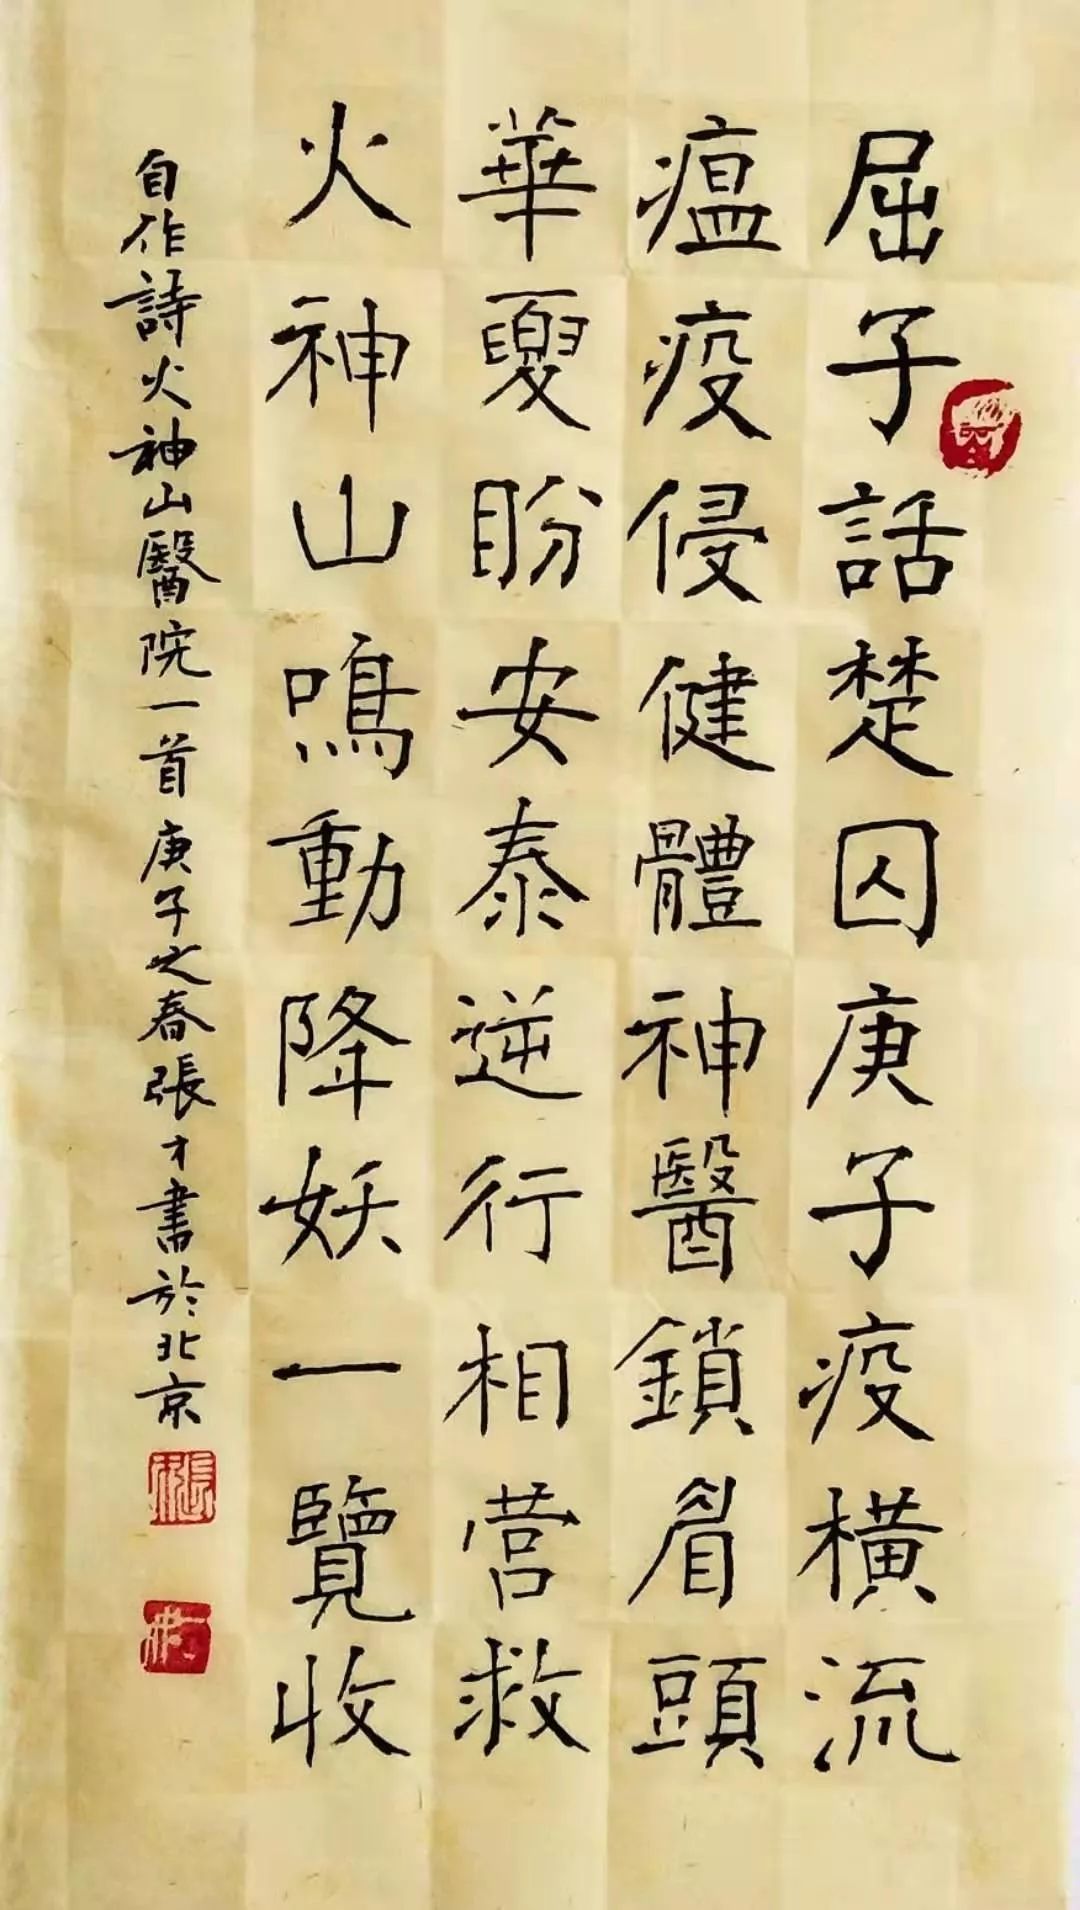 屈子話楚囚庚子疫橫流
瘟疫侵健體神醫鎖眉頭
華夏盼安泰逆行相营救
火神山鳴動降妖一覽收
自作詩火神山醫院一首庚子之春張才書於北京